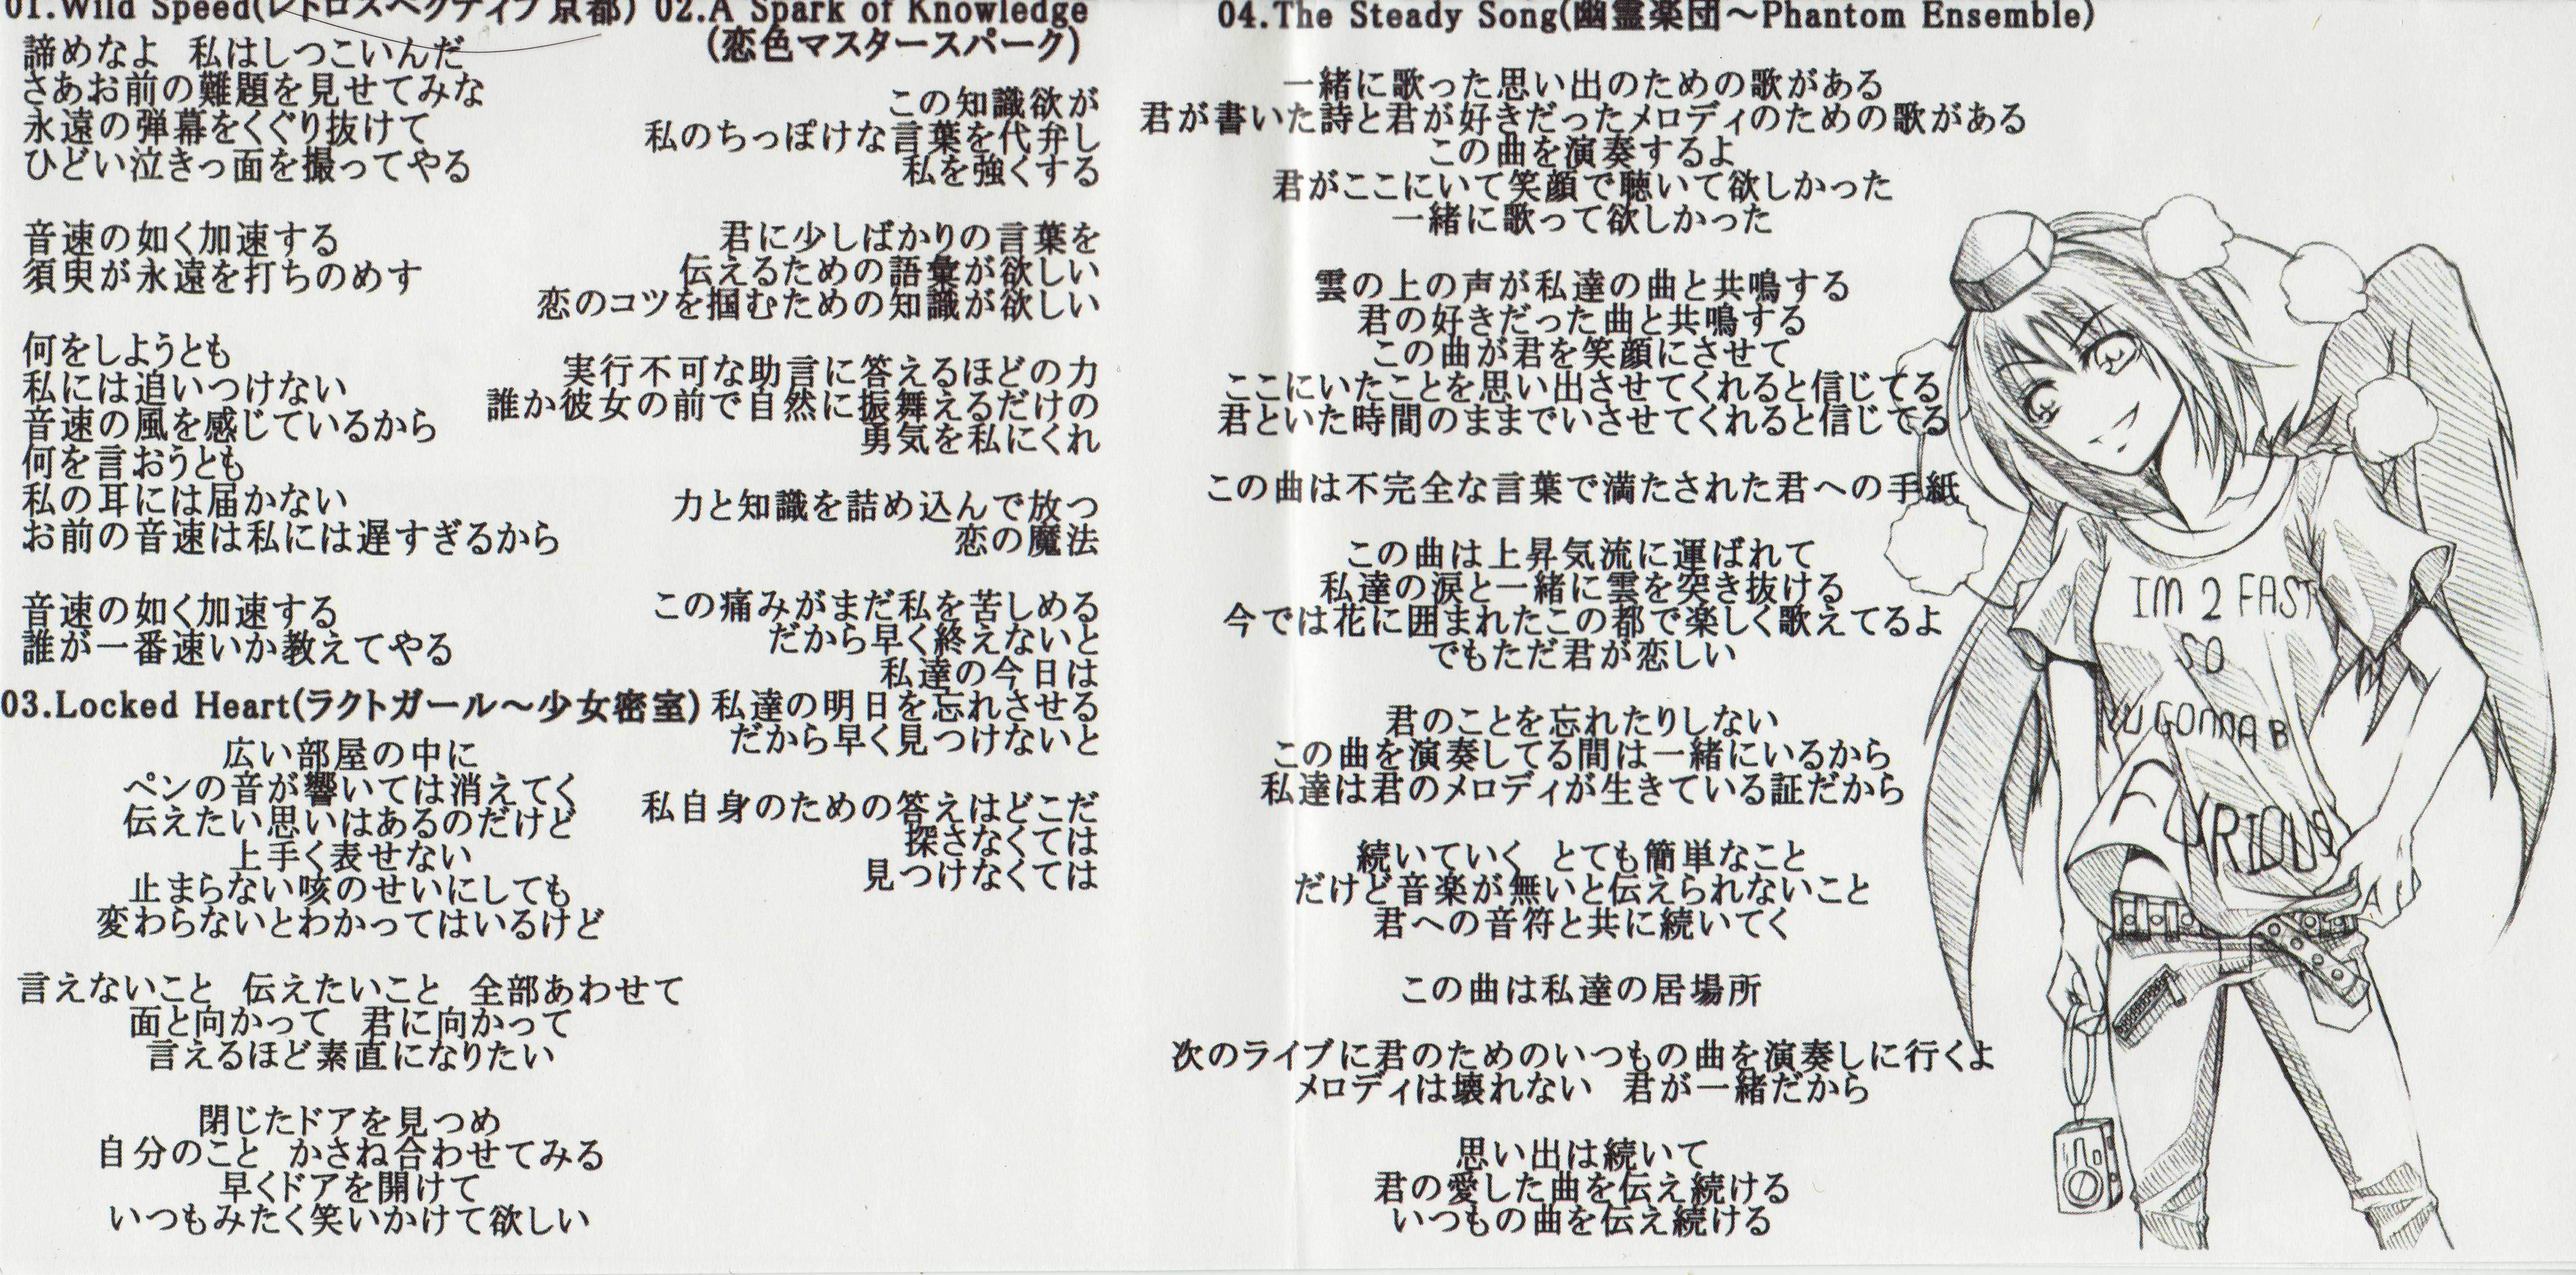 01.Wild Speed(レトロスペクティブ京都)
諦めなよ 私はしつこいんだ
さあお前の難題を見せてみな
永遠の弾幕をくぐり抜けて
ひどい泣きっ面を撮ってやる
音速の如く加速する
須臾が永遠を打ちのめす
何をしようとも
私には追いつけない
音速の風を感じているから
何を言おうとも
私の耳には届かない
お前の音速は私には遅すぎるから
音速の如く加速する
誰が一番速いか教えてやる
02.A Spark of Knowledge
(恋色マスタースパーク)
この知識欲が
私のちっぽけな言葉を代弁し
私を強くする
君に少しばかりの言葉を
伝えるための語彙が欲しい
恋のコツを掴むための知識が欲しい
実行不可な助言に答えるほどの力
誰か彼女の前で自然に振舞えるだけの
勇気を私にくれ
力と知識を詰め込んで放つ
恋の魔法
この痛みがまだ私を苦しめる
だから早く終えないと
私達の今日は
私達の明日を忘れさせる
だから早く見つけないと
私自身のための答えはどこだ
探さなくては
見つけなくては
03.Locked Heart(ラクトガール～少女密室)
広い部屋の中に
ペンの音が響いては消えてく
伝えたい思いはあるのだけど
上手く表せない
止まらない咳のせいにしても
変わらないとわかってはいるけど
言えないこと 伝えたいこと 全部あわせて
面と向かって 君に向かって
言えるほど素直になりたい
閉じたドアを見つめ
自分のこと かさね合わせてみる
早くドアを開けて
いつもみたく笑いかけて欲しい
04.The Steady Song(幽霊楽団～Phantom Ensemble)
一緒に歌った思い出のための歌がある
君が書いた詩と君が好きだったメロディのための歌がある
この曲を演奏するよ
君がここにいて笑顔で聴いて欲しかった
一緒に歌って欲しかった
雲の上の声が私達の曲と共鳴する
君の好きだった曲と共鳴する
この曲が君を笑顔にさせて
ここにいたことを思い出させてくれると信じてる
君といた時間のままでいさせてくれると信じてる
この曲は不完全な言葉で満たされた君への手紙
この曲は上昇気流に運ばれて
私達の涙と一緒に雲を突き抜ける
今では花に囲まれたこの都で楽しく歌えてるよ
でもただ君が恋しい
君のことを忘れたりしない
この曲を演奏してる間は一緒にいるから
私達は君のメロディが生きている証だから
続いていく とても簡単なこと
だけど音楽が無いと伝えられないこと
君への音符と共に続いてく
この曲は私達の居場所
次のライブに君のためのいつもの曲を演奏しに行くよ
メロディは壊れない 君が一緒だから
思い出は続いて
君の愛した曲を伝え続ける
いつもの曲を伝え続ける
IM 2 FAST
SO
U GONNA B
FURIOUS